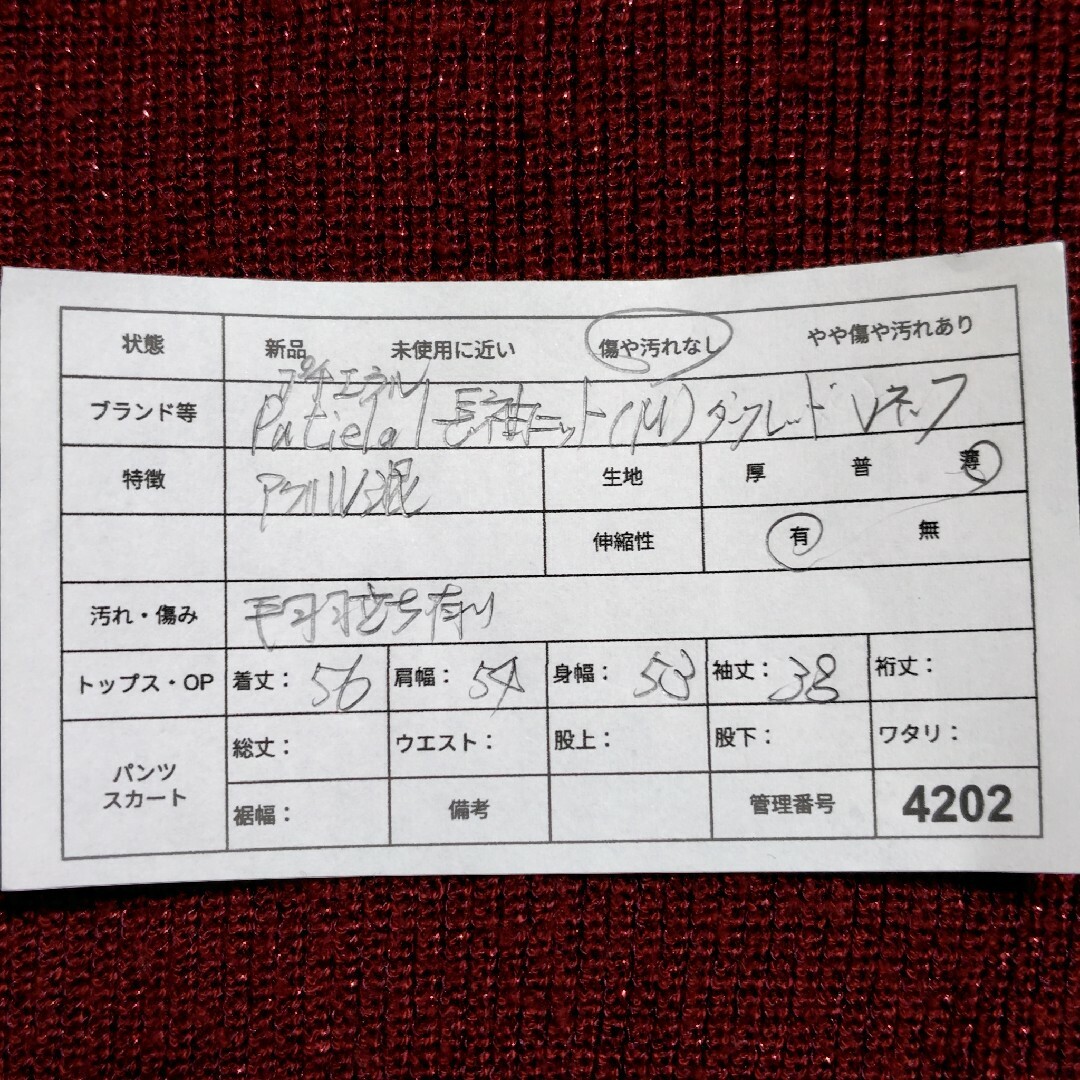 状態 新品 未使用に近い 傷や汚れなし やや傷や汚れあり
プチエネル
ブランド等 Patiela 長袖ニット(M) ダークレッド Vネック
特徴 アクリル混 生地 厚 普 薄
伸縮性 有 無
汚れ・傷み 毛羽立ち有り
トップス・OP 着丈: 56 肩幅: 54 身幅: 53 袖丈: 38 裄丈:
パンツ スカート 総丈: ウエスト: 股上: 股下: ワタリ:
裾幅: 備考 管理番号 4202